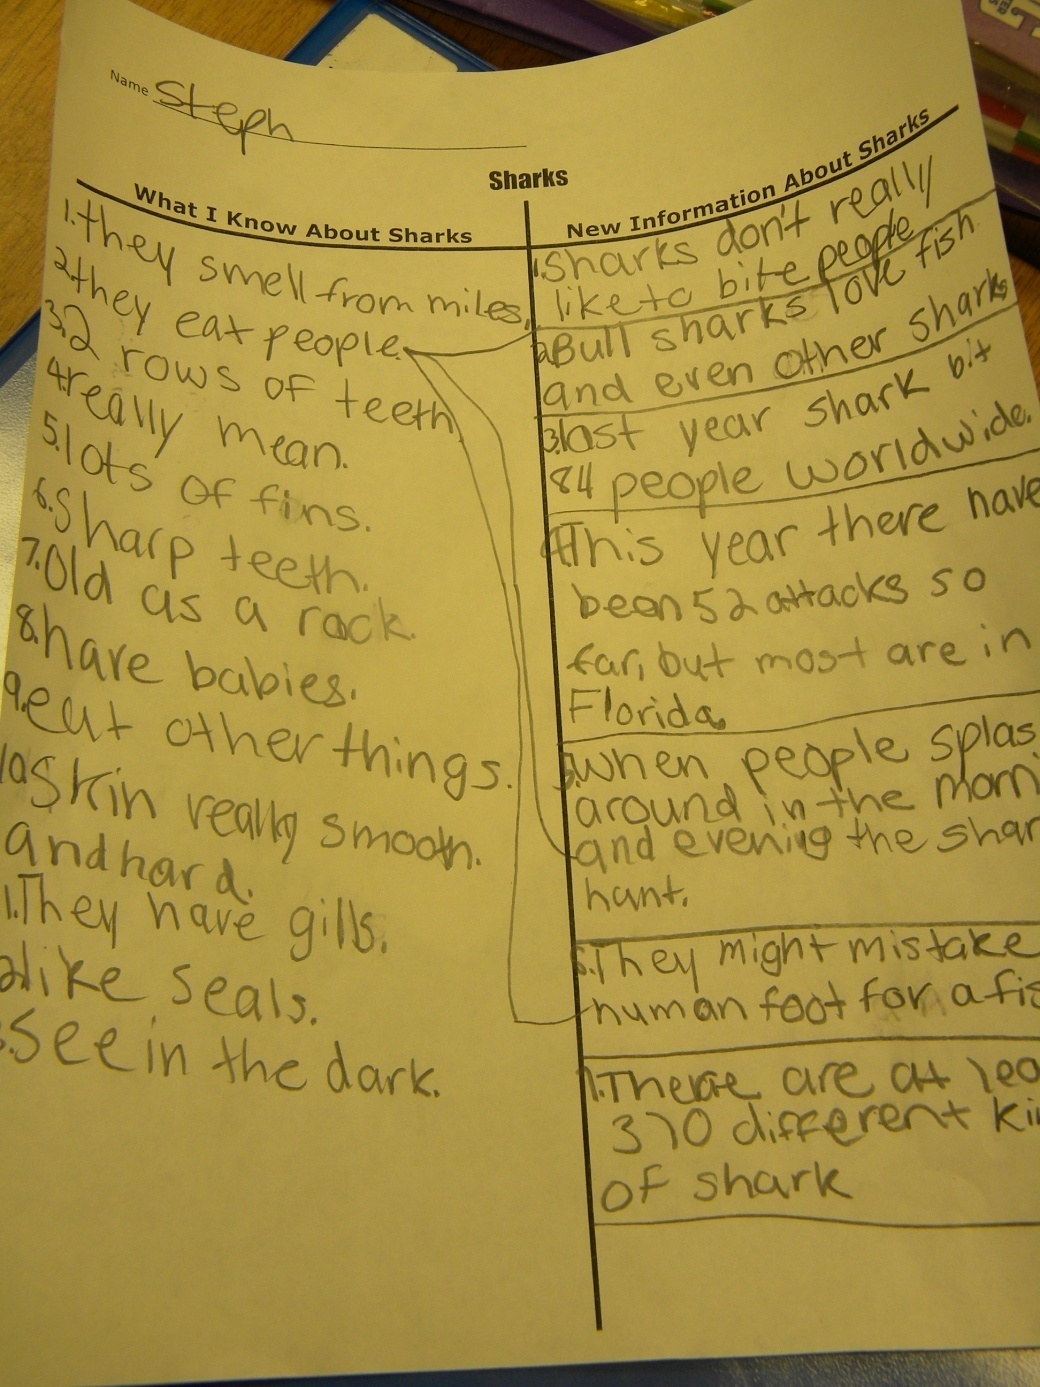 Name Steph
Sharks
What I Know About Sharks
1. they smell from miles.
2. they eat people.
3. 2 rows of teeth
4. really mean.
5. lots of fins.
6. Sharp teeth.
7. Old as a rock.
8. have babies.
9. eat other things.
10. Skin really smooth.
and hard.
1. They have gills.
2. like seals.
3. See in the dark.
New Information About Sharks
1. Sharks don't really
like to bite people
2. Bull sharks love fish
and even other sharks
3. last year shark bit
84 people worldwide.
4. This year there have
been 52 attacks so
far, but most are in
Florida.
5. When people splas
around in the morni
and evening the shar
hunt.
6. They might mistake
human foot for a fis
7. There are at lea
370 different ki
of shark